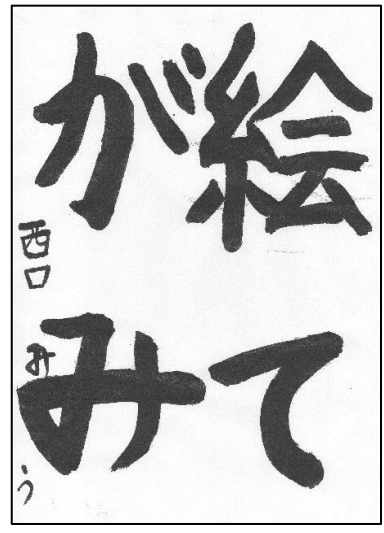 絵て
がみ
西口 み う